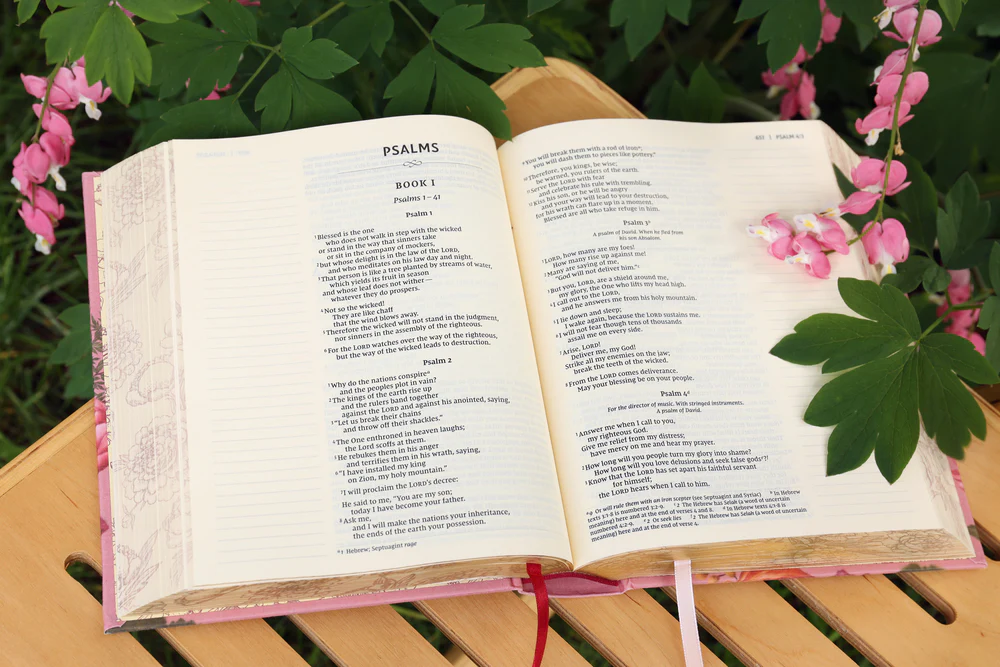 PSALMS
BOOK I
Psalms 1–41
Psalm 1
1Blessed is the one
who does not walk in step with the wicked
or stand in the way that sinners take
or sit in the company of mockers,
2but whose delight is in the law of the LORD,
and who meditates on his law day and night.
3That person is like a tree planted by streams of water,
which yields its fruit in season
and whose leaf does not wither—
whatever they do prospers.
4Not so the wicked!
They are like chaff
that the wind blows away.
5Therefore the wicked will not stand in the judgment,
nor sinners in the assembly of the righteous.
6For the LORD watches over the way of the righteous,
but the way of the wicked leads to destruction.
Psalm 2
1Why do the nations conspirea
and the peoples plot in vain?
2The kings of the earth rise up
and the rulers band together
against the LORD and against his anointed, saying,
3“Let us break their chains
and throw off their shackles.”
4The One enthroned in heaven laughs;
the Lord scoffs at them.
5He rebukes them in his anger
and terrifies them in his wrath, saying,
6“I have installed my king
on Zion, my holy mountain.”
7I will proclaim the LORD’s decree:
He said to me, “You are my son;
today I have become your father.
8Ask me,
and I will make the nations your inheritance,
the ends of the earth your possession.
a1 Hebrew; Septuagint rage
PSALM 4:3
9You will break them with a rod of ironb;
you will dash them to pieces like pottery.”
10Therefore, you kings, be wise;
be warned, you rulers of the earth.
11Serve the LORD with fear
and celebrate his rule with trembling.
12Kiss his son, or he will be angry
and your way will lead to your destruction,
for his wrath can flare up in a moment.
Blessed are all who take refuge in him.
Psalm 3c
A psalm of David. When he fled from
his son Absalom.
1LORD, how many are my foes!
How many rise up against me!
2Many are saying of me,
“God will not deliver him.”d
3But you, LORD, are a shield around me,
my glory, the One who lifts my head high.
4I call out to the LORD,
and he answers me from his holy mountain.
5I lie down and sleep;
I wake again, because the LORD sustains me.
6I will not fear though tens of thousands
assail me on every side.
7Arise, LORD!
Deliver me, my God!
Strike all my enemies on the jaw;
break the teeth of the wicked.
8From the LORD comes deliverance.
May your blessing be on your people.
Psalm 4e
For the director of music. With stringed instruments.
A psalm of David.
1Answer me when I call to you,
my righteous God.
Give me relief from my distress;
have mercy on me and hear my prayer.
2How long will you people turn my glory into shame?
How long will you love delusions and seek false gods?
3Know that the LORD has set apart his faithful servant
for himself;
the LORD hears when I call to him.
b9 Or will rule them with an iron scepter (see Septuagint and Syriac) c In Hebrew
texts 3:1-8 is numbered 3:2-9. d2 The Hebrew has Selah (a word of uncertain
meaning) here and at the end of verses 4 and 8. e In Hebrew texts 4:1-8 is
numbered 4:2-9. 2 Or seek lies 2 The Hebrew has Selah (a word of uncertain
meaning) here and at the end of verse 4.